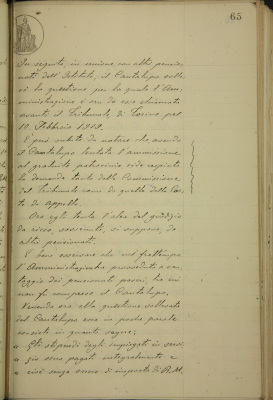 65
In seguito, in unione con altri pensio-
nati dell'Istituto, il Cantalupo solle-
vò la questione per la quale l'Am-
ministrazione è ora da esso chiamata
avanti il Tribunale di Torino pel
10 Febbraio 1919.
È poi subito da notare che avendo
il Cantalupo tentata l'ammissione
al gratuito patrocinio vide respinta
la domanda tanto dalla Commissione
del Tribunale come da quella della Cor-
te di Appello.
Ora egli tenta l'alea del giudizio
da ricco, sovvenuto, si suppone, da
altri pensionati.
È bene osservare che nel frattempo
l'Amministrazione provvedeva a van-
taggio dei pensionati poveri, tra cui
non fu compreso il Cantalupo.
Venendo ora alla questione sollevata
dal Cantalupo essa in poche parole
consiste in quanto segue:
" Gli stipendi degli impiegati in servi-
" zio sono pagati integralmente e
" cioè senza onere di imposta di R.M.